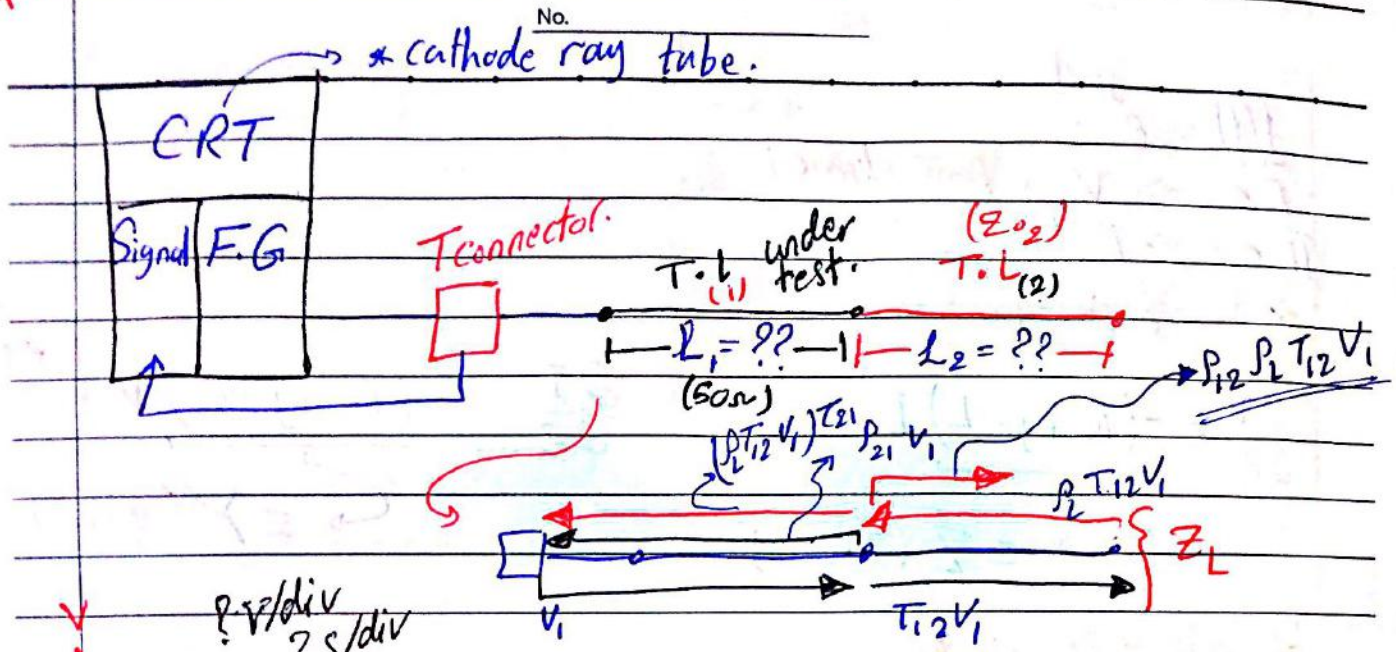 No.
* cathode ray tube.
CRT
Signal F.G
T connector.
T.L (1) under test.
(Z02)
T.L (2)
L1 = ??
L2 = ??
(50Ω)
ρ12 ρL T12 V1
(ρL T12 V1) T21
ρ21 V1
ρL T12 V1
ZL
V1
T12 V1
? v/div
? s/div